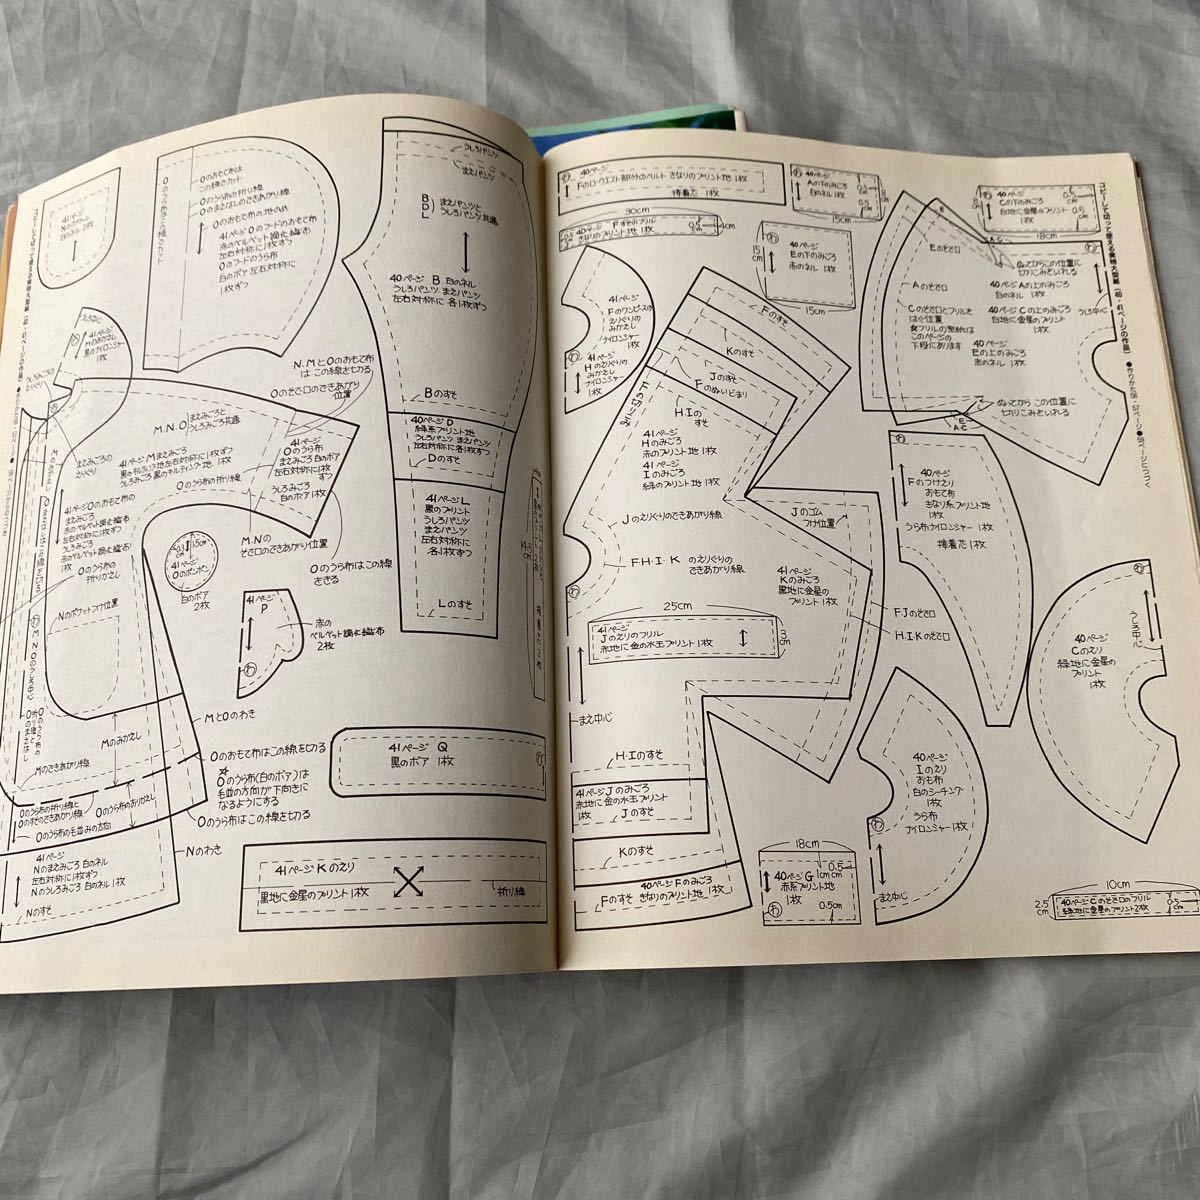 41ページ
Nのポケット
白のネル 2枚
Oのおもて布は
この線でカット
Oのうら布の折り線
Oのおもて布の地の目
41ページ Oのフードのおもて布
左右対称に
1枚ずつ
Oのフードのうら布
白のボア 左右対称に
1枚ずつ
うしろパンツ
まえパンツ
B
D
L
まえパンツと
うしろパンツ共通
40ページ B 白のネル
うしろパンツ まえパンツ
左右対称に 各1枚ずつ
Bのすそ
40ページ D
緑系プリント地
うしろパンツ まえパンツ
左右対称に各1枚ずつ
Dのすそ
41ページ L
黒のプリント
うしろパンツ
まえパンツ
左右対称に
各1枚ずつ
Lのすそ
うしろ中心
41ページ
N.MとOのおもて布
はこの線を切る
Oのそで口のできあがり
位置
M.N.O
まえみごろと
うしろみごろ共通
まえみごろの
えりぐり
41ページ Mまえみごろ
41ページ
Oのうら布
まえみごろ 白のボア
左右対称に 1枚
ずつ
うしろみごろ
白のボア 1枚
Oのうら布の折り線
41ページOのおもて布の
まえみごろ
左右対称に1枚ずつ
うしろみごろ
1枚
M.Nの
そで口のできあがり位置
Oのうら布はこの線
をきる
Oのうら布の
折りかえし
0.3cm
1.5cm
41ページ
Oのポンポン
白のボア
2枚
Nのポケットつけ位置
41ページ
P
赤の
2枚
わ
M.N.Oのうしろ中心
MとOのわき
Mのみかえし
Mのできあがり線
Oのおもて布はこの線を切る
☆
Oのうら布(白のボア)は
毛並の方向が下向きに
なるようにする
Oのうら布はこの線を切る
Oのうら布の折りかえし
Oのうら布の毛並みの方向
41ページ
Nのまえみごろ 白のネル
左右対称に1枚ずつ
Nのうしろみごろ 白のネル 1枚
Nのすそ
Nのわき
41ページ Q
黒のボア 1枚
わ
41ページ Kのえり
黒地に金星のプリント 1枚
折り線
40ページ
Fのローウエスト部分のベルト きなりのプリント地 1枚
接着芯 1枚
30cm
40ページ Fすそのフリル
きなりのプリント地 1枚
0.5
cm
4cm
40ページ
Aの下のみごろ
白のネル 1枚
15cm
0.5
cm
わ
40ページ
Cの下のみごろ
白地に金星のプリント
1枚
0.5
cm
18cm
コピーして切って使える実物大型紙(40・41ページの作品)
わ
40ページ
Eの下のみごろ
赤のネル 1枚
15cm
15cm
Eのそで口
Aのそで口
Cのそで口とフリルを
はぐ位置
ぬってからこの位置に
切りこみをいれる
40ページ Aの上のみごろ
白のネル 1枚
40ページ Cの上のみごろ
白地に金星のプリント
1枚
40ページ
Eの上のみごろ
赤のネル 1枚
わ
うしろ中心
ぬってから この位置に
切りこみをいれる
41ページ
Fのワンピースの
えりぐりの
みかえし
ナイロンシャー
1枚
わ
41ページ
Hのえりぐりの
みかえし
ナイロンシャー
1枚
Fのすそ
Kのすそ
Jのすそ
Fのぬいどまり
H・Iのすそ
41ページ
Hのみごろ
赤のプリント地 1枚
41ページ
Iのみごろ
緑のプリント地 1枚
Jのえりぐりのできあがり線
F・H・I・K のえりぐりの
できあがり線
Jのゴム
つけ位置
41ページ
Kのみごろ
黒地に金星の
プリント 1枚
F・Jのそで口
H・I・Kのそで口
25cm
41ページ
Jのえりのフリル
赤地に金の水玉プリント 1枚
3
cm
まえ中心
H・Iのすそ
41ページ Jのみごろ
赤地に金の水玉プリント
1枚
Jのすそ
Kのすそ
Fのすそ
40ページ Fのみごろ
きなりのプリント地 1枚
わ
40ページ
Fのつけえり
おもて布
きなり系プリント地
1枚
うら布ナイロンシャー 1枚
接着芯 1枚
わ
うしろ中心
40ページ
Cのえり
緑地に金星の
プリント
1枚
40ページ
Iのえり
おもて布
白のシーチング
1枚
うら布
ナイロンシャー 1枚
わ
まえ中心
18cm
40ページ G
赤系プリント地
1枚
0.5
cm
わ
0.5cm
10cm
2.5
cm
40ページ Cのそで口のフリル
緑地に金星のプリント 2枚
0.5
cm